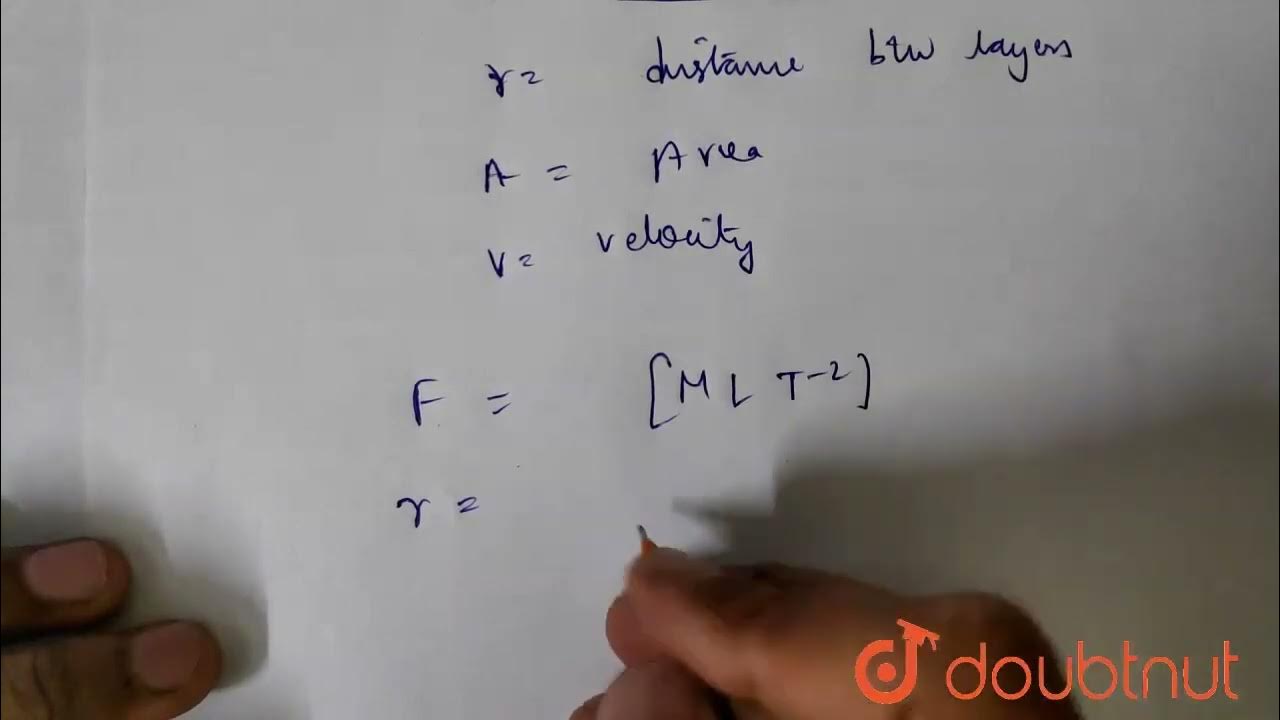 r = distance btw layers
A = Area
v = velocity
F = [M L T-2]
r =
doubtnut